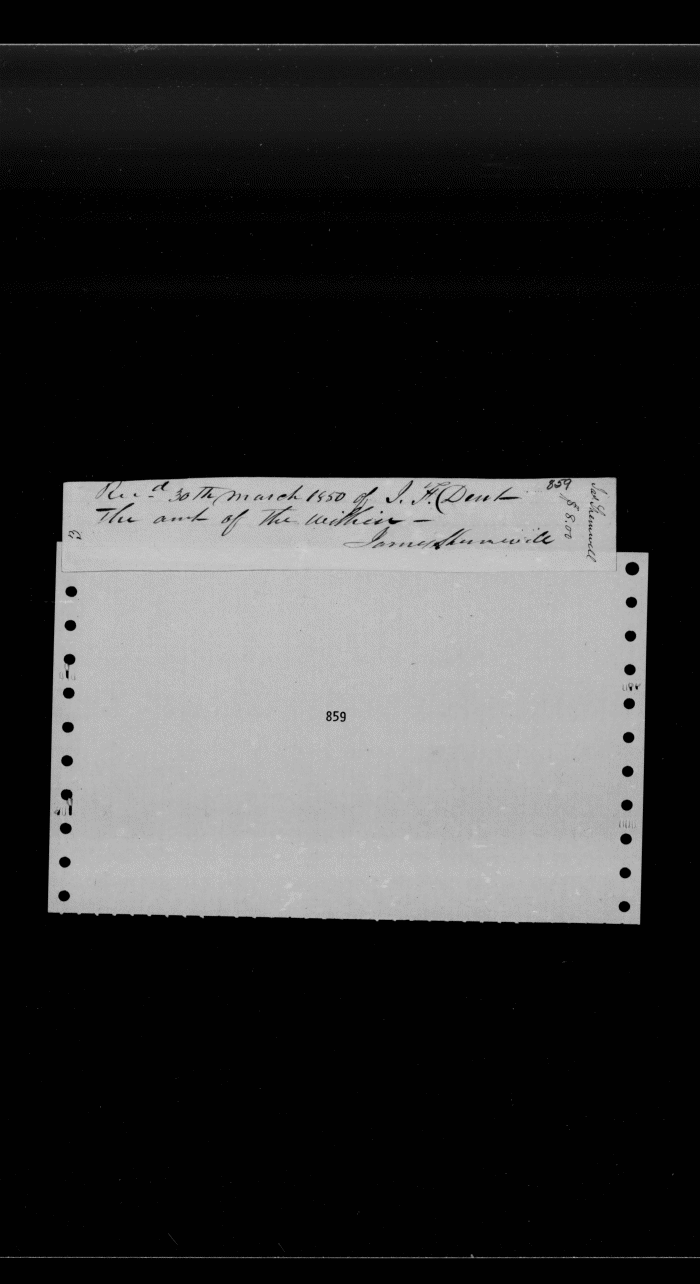 Rec.d 30th March 1850 of J. F. Dent
the amt of the within —
James Shemwell
859
Jas Shemwell
$8.00
859